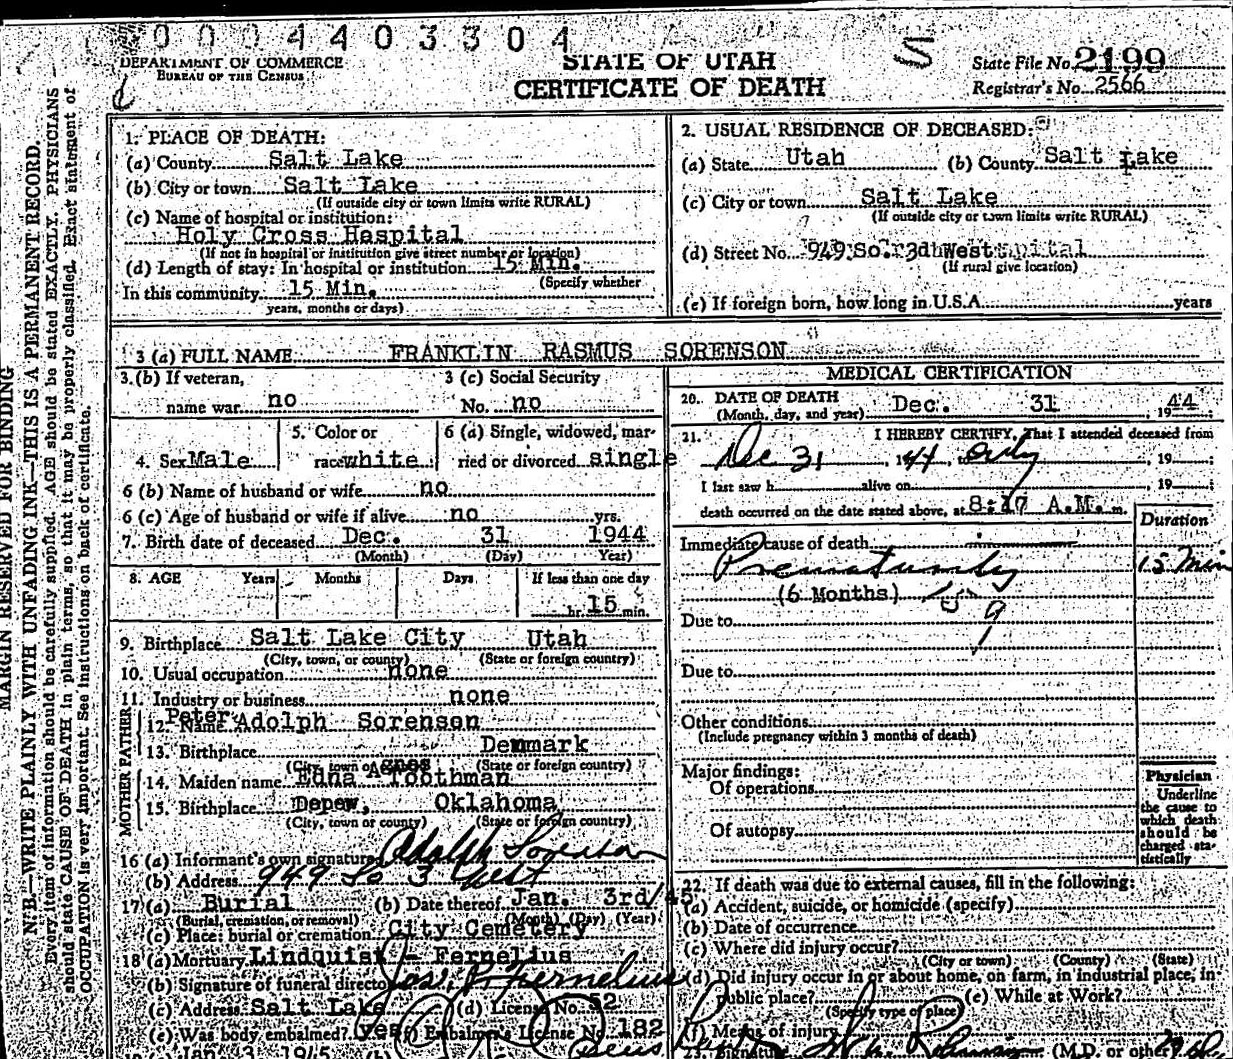 0 0 0 4 4 0 3 3 0 4
DEPARTMENT OF COMMERCE
BUREAU OF THE CENSUS
STATE OF UTAH
CERTIFICATE OF DEATH
S
State File No. 2199
Registrar's No. 2566
MARGIN RESERVED FOR BINDING
N. B.—WRITE PLAINLY WITH UNFADING INK—THIS IS A PERMANENT RECORD.
Every item of information should be carefully supplied. AGE should be stated EXACTLY. PHYSICIANS
should state CAUSE OF DEATH in plain terms, so that it may be properly classified. Exact statement of
OCCUPATION is very important. See instructions on back of certificate.
1. PLACE OF DEATH:
(a) County Salt Lake
(b) City or town Salt Lake
(If outside city or town limits write RURAL)
(c) Name of hospital or institution:
Holy Cross Hospital
(If not in hospital or institution give street number or location)
(d) Length of stay: In hospital or institution 15 Min.
(Specify whether
In this community 15 Min.
years, months or days)
2. USUAL RESIDENCE OF DECEASED:
(a) State Utah (b) County Salt Lake
(c) City or town Salt Lake
(If outside city or town limits write RURAL)
(d) Street No. 949 So. 3d West
(If rural give location)
(e) If foreign born, how long in U.S.A. years
3 (a) FULL NAME FRANKLIN RASMUS SORENSON
3.(b) If veteran, 3 (c) Social Security
name war no No. no
4. Sex Male 5. Color or race white 6 (a) Single, widowed, mar-
ried or divorced single
6 (b) Name of husband or wife no
6 (c) Age of husband or wife if alive no yrs.
7. Birth date of deceased Dec. 31 1944
(Month) (Day) Year)
8. AGE Years Months Days If less than one day
hr. 15 min.
9. Birthplace Salt Lake City Utah
(City, town, or county) (State or foreign country)
10. Usual occupation none
11. Industry or business none
FATHER
12. Name Peter Adolph Sorenson
13. Birthplace Denmark
(City, town or (State or foreign country)
MOTHER
14. Maiden name Edna Agnes Toothman
15. Birthplace Depew, Oklahoma
(City, town or county) (State or foreign country)
16 (a) Informant's own signature Adolph Sorenson
(b) Address 949 So 3 West
17 (a) Burial (b) Date thereof Jan. 3rd/45
(Burial, cremation, or removal) (Month) (Day) (Year)
(c) Place: burial or cremation City Cemetery
18 (a) Mortuary Lindquist - Fernelius
(b) Signature of funeral director Jos. P. Fernelius
(c) Address Salt Lake (d) License No. 52
(e) Was body embalmed? yes (f) Embalmer's License No. 182
Jan. 3, 1945
MEDICAL CERTIFICATION
20. DATE OF DEATH
(Month, day, and year) Dec. 31, 1944
21. I HEREBY CERTIFY, That I attended deceased from
Dec 31, 1944, to only, 19 ;
I last saw h alive on , 19 ;
death occurred on the date stated above, at 8:17 A.M. m.
Duration
Immediate cause of death
Prematurity 15 Min
(6 Months) 159
Due to
Due to
Other conditions
(Include pregnancy within 3 months of death)
Major findings:
Of operations
Of autopsy
Physician
Underline
the cause to
which death
should be
charged sta-
tistically
22. If death was due to external causes, fill in the following:
(a) Accident, suicide, or homicide (specify)
(b) Date of occurrence
(c) Where did injury occur?
(City or town) (County) (State)
(d) Did injury occur in or about home, on farm, in industrial place, in
public place? (e) While at Work?
(Specify type of place)
(f) Means of injury
23. Signature (M.D. or oth